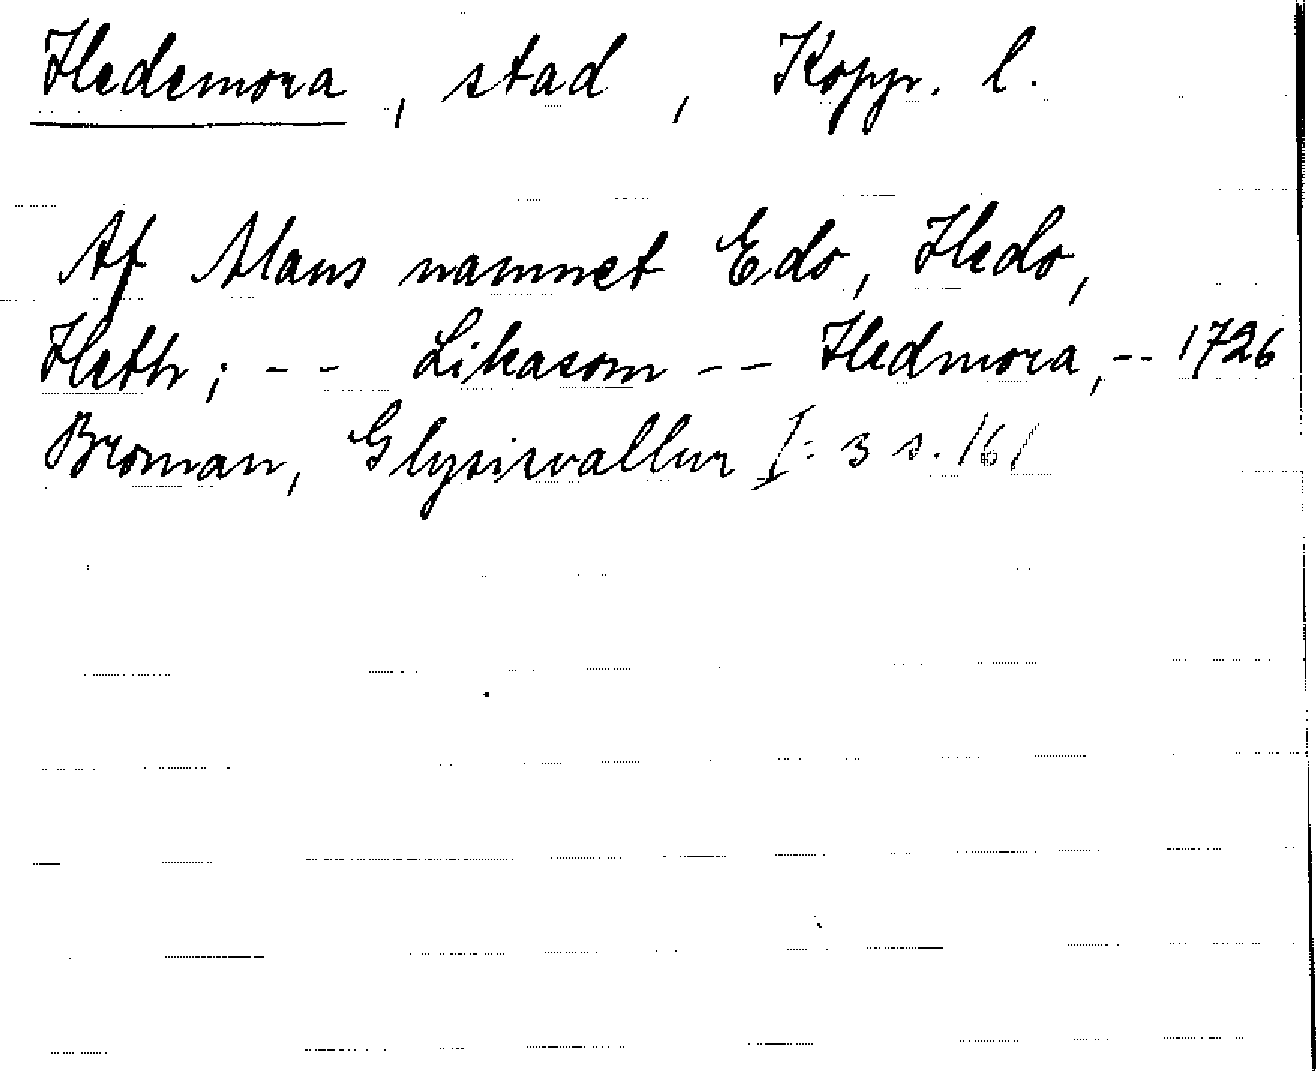 Hedemora, stad, Kopp. l.
Af Mans namnet Edo, Hedo,
Heth; -- Likasom -- Hedmora, -- 1726
Broman, Glysisvallur I: 3 s. 161